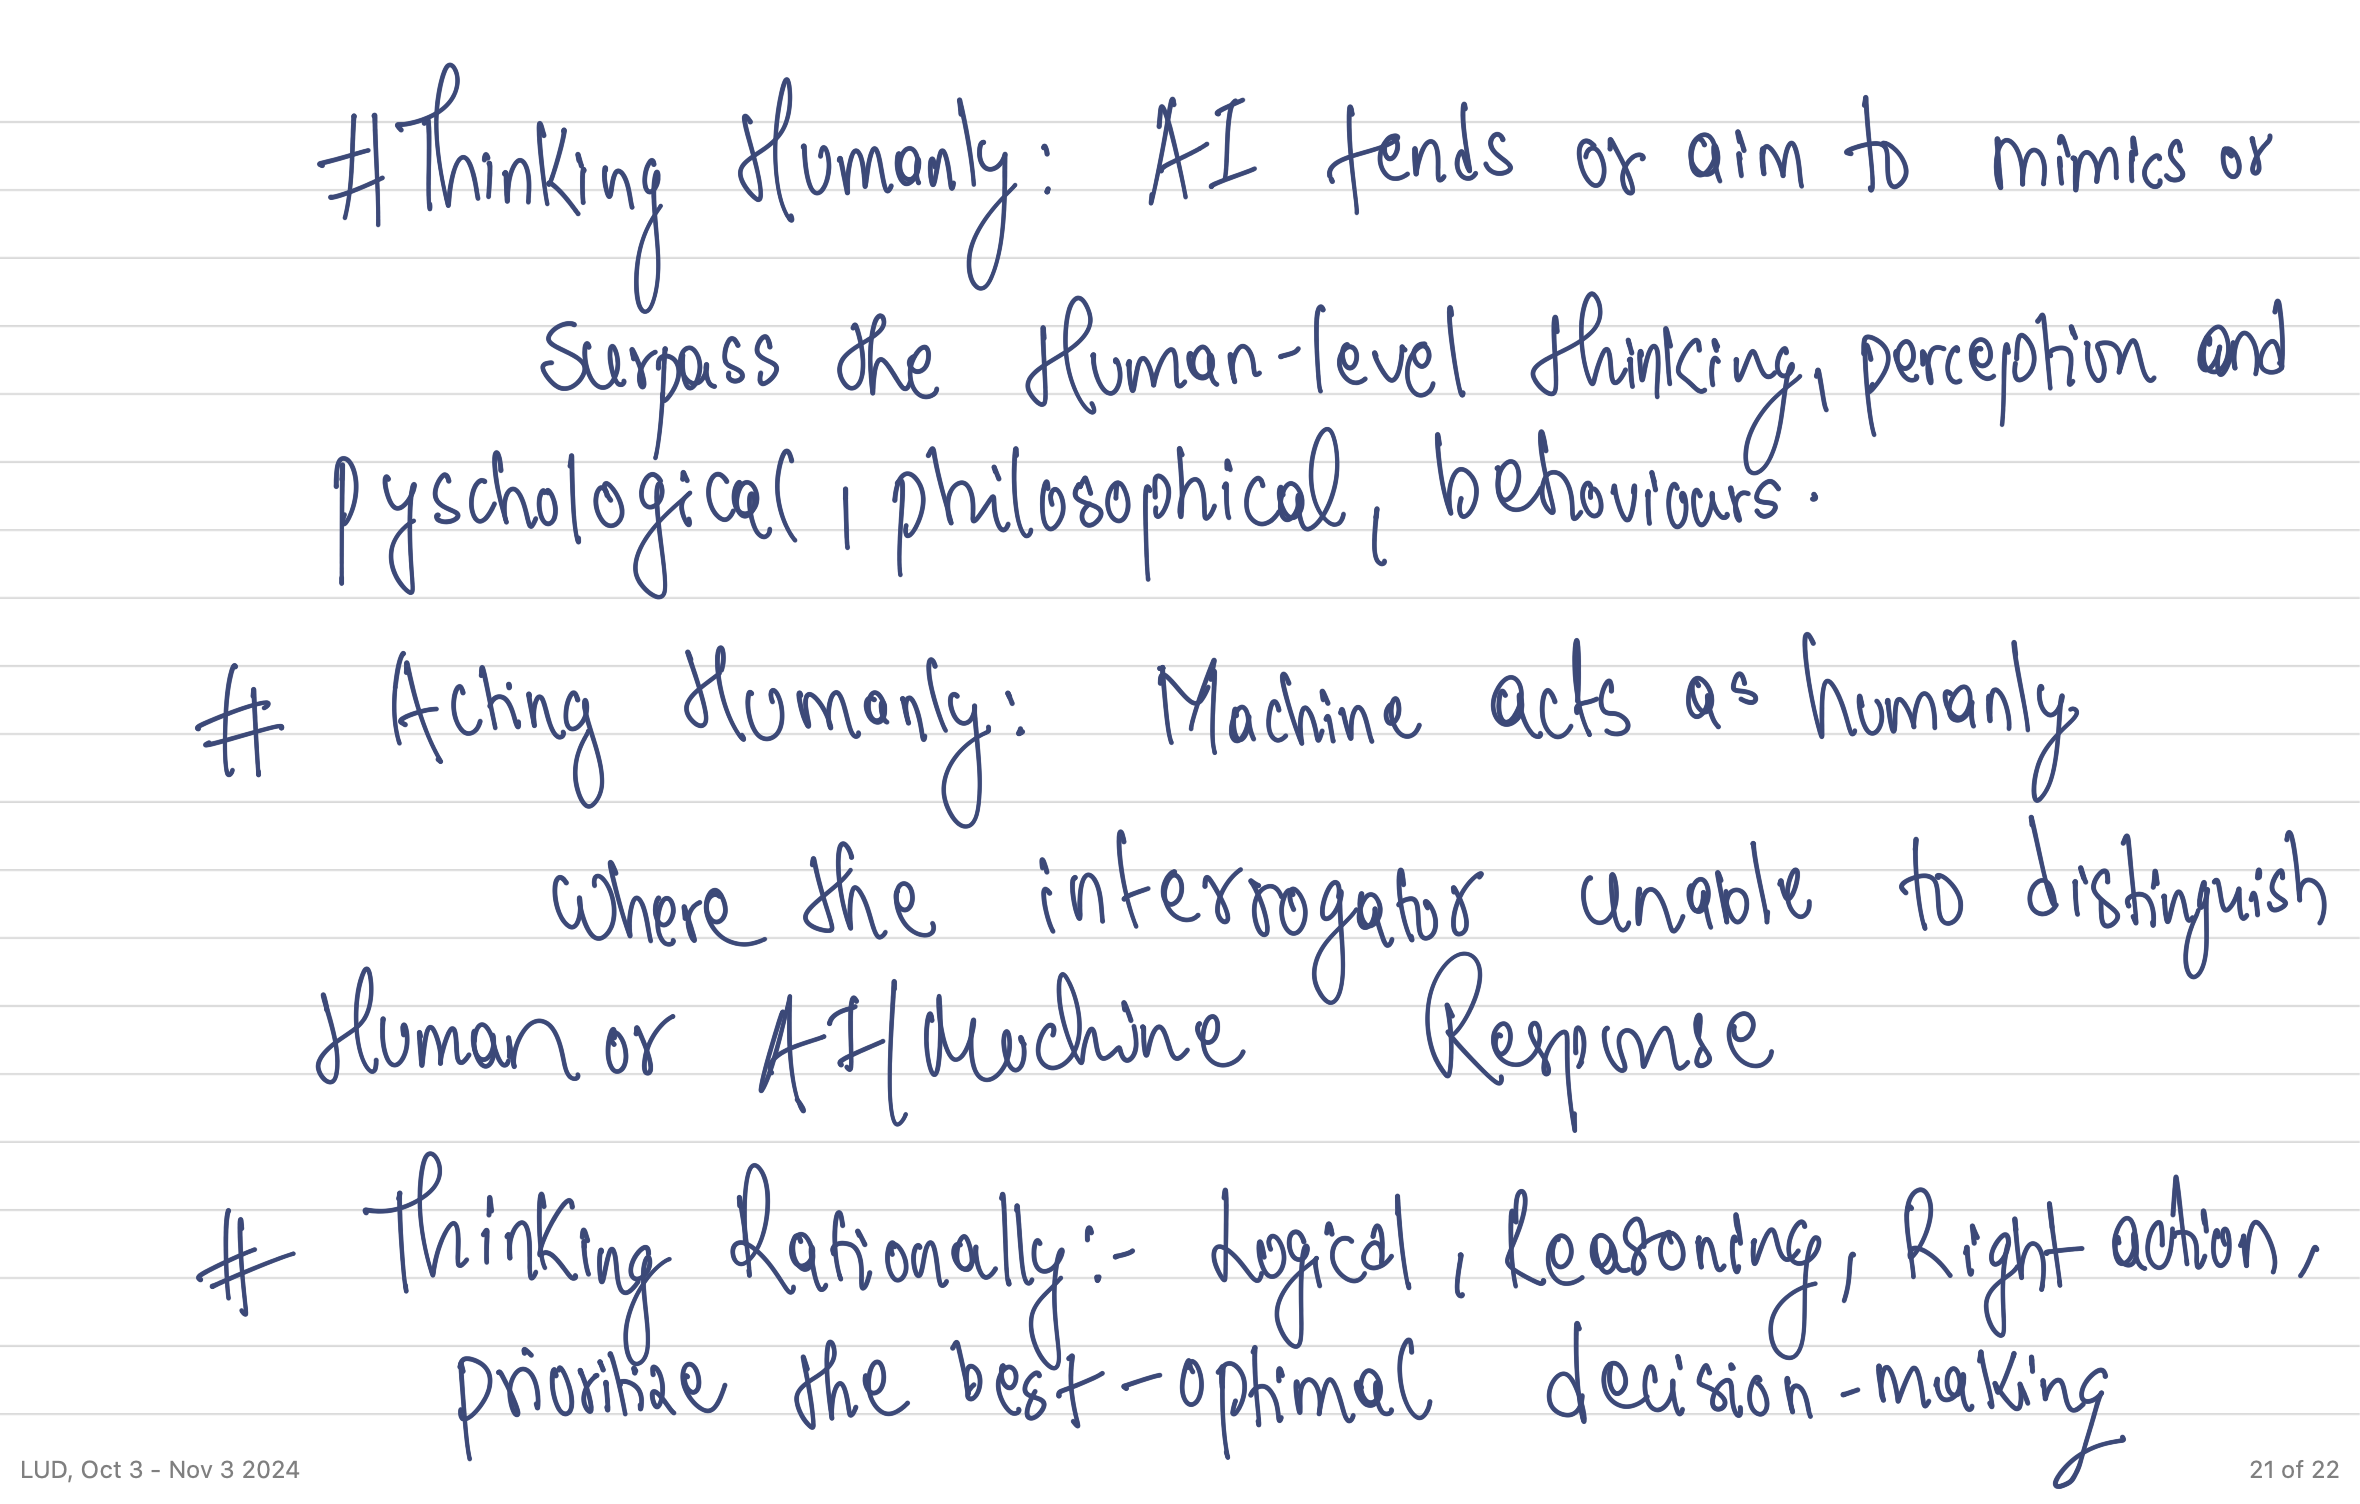 #Thinking Humanly: AI tends or aim to mimics or
Surpass the Human-level thinking, perception and
pyschological, philosophical, behaviours.
# Acting Humanly: Machine acts as humanly
where the interrogator unable to distinguish
Human or AI/Machine Response
# Thinking Rationally:- Logical, Reasoning, Right action,
prioritize the best-optimal decision-making
LUD, Oct 3 - Nov 3 2024
21 of 22